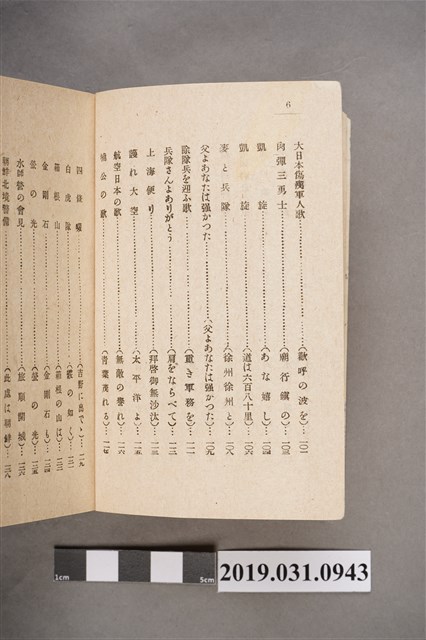 6
大日本傷痍軍人歌……(歡呼の波を)…一〇二
肉彈三勇士……(廟行鎭の)…一〇三
凱旋……(あな嬉し)…一〇四
凱旋……(道は六百八十里)…一〇六
麥と兵隊……(徐州徐州と)…一〇八
父よあなたは强かつた……(父よあなたは强かつた)…一〇九
除隊兵を迎ふ歌……(重き軍務を)…一一一
兵隊さんよありがとう……(肩をならべて)…一一二
上海便り……(拜啓御無沙汰)…一一三
護れ大空……(太平洋よ)…一一五
航空日本の歌……(無敵の譽れ)…一一六
楠公の歌……(靑葉茂れる)…一一七
四條畷……(吉野に出でゝ)…一一九
白虎隊……(霰の如く)…一二一
箱根山……(箱根の山は)…一二三
金剛石……(金剛石も)…一二四
螢の光……(螢の光)…一二五
水師營の會見……(旅順開城)…一二六
朝鮮北境警備……(此處は朝鮮)…一二八
1cm
5cm
2019.031.0943